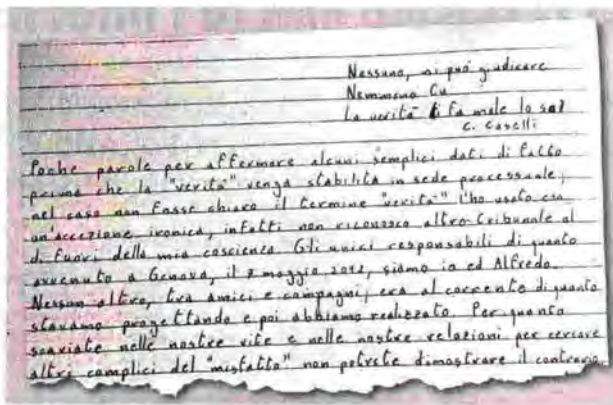 Nessuno, mi può giudicare
Nemmeno tu
La verità ti fa male lo sai
C. Caselli
Poche parole per affermare alcuni semplici dati di fatto
prima che la "verità" venga stabilita in sede processuale,
nel caso non fosse chiaro il termine "verità" l'ho usato con
un'accezione ironica, infatti non riconosco altro tribunale al
di fuori della mia coscienza. Gli unici responsabili di quanto
avvenuto a Genova, il 7 maggio 2012, siamo io ed Alfredo.
Nessun altro, tra amici e compagni, era al corrente di quanto
stavamo progettando e poi abbiamo realizzato. Per quanto
scaviate nelle nostre vite e nelle nostre relazioni per cercare
altri complici del "misfatto" non potrete dimostrare il contrario.